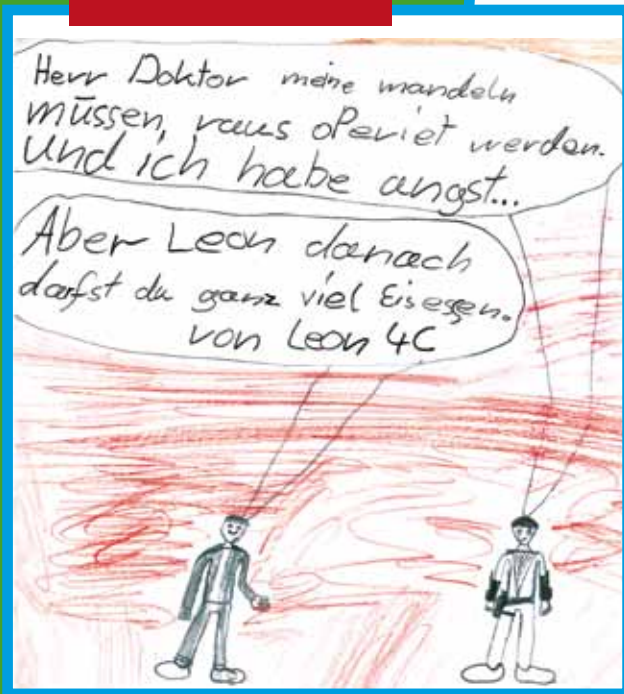 Herr Doktor meine mandeln
müssen, raus oPeriet werden.
Und ich habe angst...
Aber Leon danach
darfst du ganz viel Eis essen.
von Leon 4C